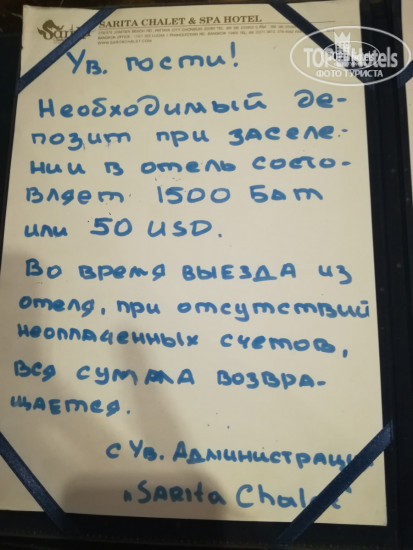 SARITA CHALET & SPA HOTEL
TOPHotels
ФОТО ТУРИСТА
Ув. гости!
Необходимый де-
позит при заселе-
нии в отель состо-
вляет 1500 Бат
или 50 USD.
Во время выезда из
отеля, при отсутствий
неоплаченных счетов,
вся сумма возвра-
щается.
с Ув. Администрац
"SARITA Chalet"